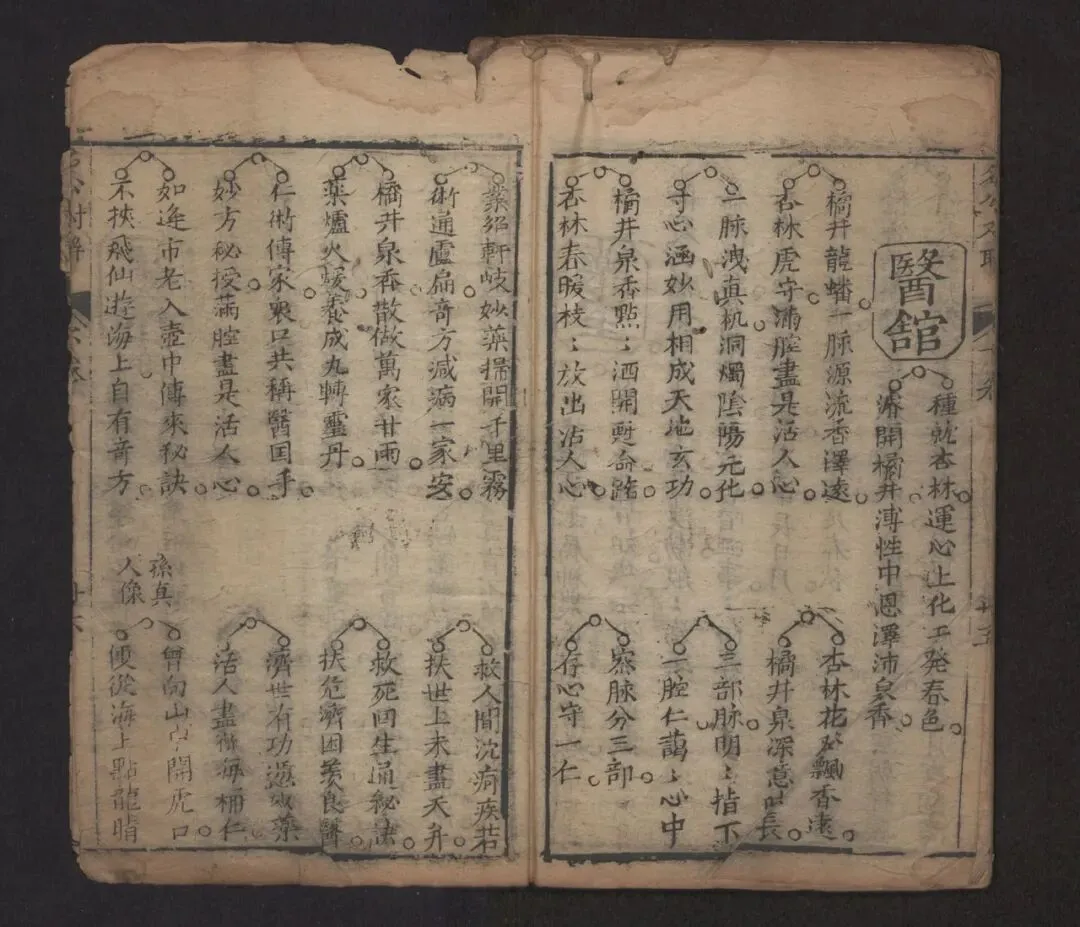 醫舘
種就杏林運心上化工発春色
濬開橘井溥性中恩澤沛泉香
橘井龍蟠一脉源流香澤遠
杏林虎守滿腔盡是活人心
一脉洩真机洞燭陰陽元化
寸心涵妙用相成天地玄功
橘井泉香點〻洒開甦命路
杏林春暖枝〻放出活人心
杏林花發飄香遠
橘井泉深意味長
三部脉明〻指下
一腔仁藹〻心中
察脉分三部
存心守一仁
業紹軒岐妙藥掃開千里霧
術通盧扁竒方減病一家安
橘井泉香散做萬家甘雨
藥爐火煖養成九轉靈丹
仁術傳家衆口共稱醫国手
妙方秘授滿腔盡是活人心
如逢市老入壺中傳來秘訣
不挾飛仙遊海上自有竒方
救人間沈疴疾若
扶世上未盡天年
救死回生通秘訣
扶危濟困羨良醫
濟世有功遍放藥
活人盡術海桶仁
孫真
人像
曾向山中開虎口
便從海上點龍睛